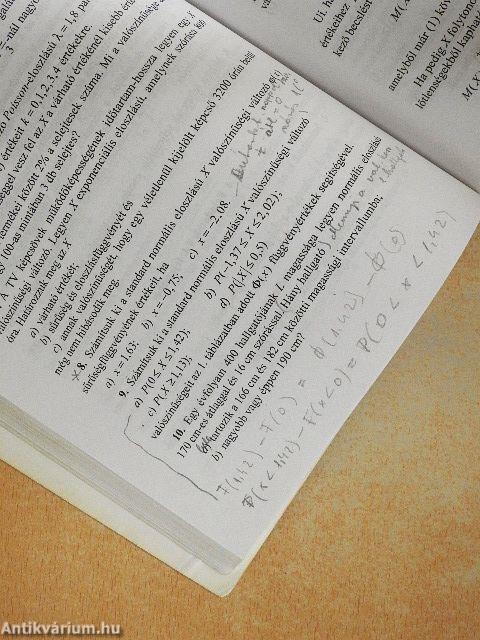 zó Poisson-eloszlású λ = 1,8 pa
értékeit k = 0,1,2,3,4 értékekre.
séggel vesz fel az X a várható értékénél kisebb érté
termékei között 2% a selejtesek száma. Mi a valószínűsége
100-as mintában 3 db selejtes?
A TV képcsövek működőképességének időtartam-hossza legyen egy X
valószínűségi változó. Legyen X exponenciális eloszlású, amelynek szórása 1600
óra. Határozzuk meg az X
a) várható értékét;
b) sűrűség és eloszlásfüggvényét és
c) annak valószínűségét, hogy egy véletlenül kijelölt képcső 3200 órán belül
még nem hibásodik meg.
8. Számítsuk ki a standard normális eloszlású X valószínűségi változó Φ(x)
sűrűségfüggvényének értékeit, ha
a) x = 1,63; b) x = −0,75; c) x = −2,08.
9. Számítsuk ki a standard normális eloszlású X valószínűségi változó
a) P(0 ≤ X ≤ 1,42); b) P(−1,37 ≤ X ≤ 2,02);
c) P(X ≥ 1,13); d) P(|X| ≤ 0,5)
valószínűségeit az I. táblázatban adott Φ(x) függvényértékek segítségével.
10. Egy évfolyam 400 hallgatójának L magassága legyen normális eloszlású
170 cm-es átlaggal és 16 cm szórással. Hány hallgató
tartozik a 166 cm és 182 cm közötti magassági intervallumba;
b) nagyobb vagy éppen 190 cm?
F(1,42) − F(0) = Φ(1,42) − Φ(0)
Φ(x < 1,42) − F(x < 0) = P(0 < x < 1,42)
M(X
Ha pedig X folytonos
M(X
Antikvárium.hu